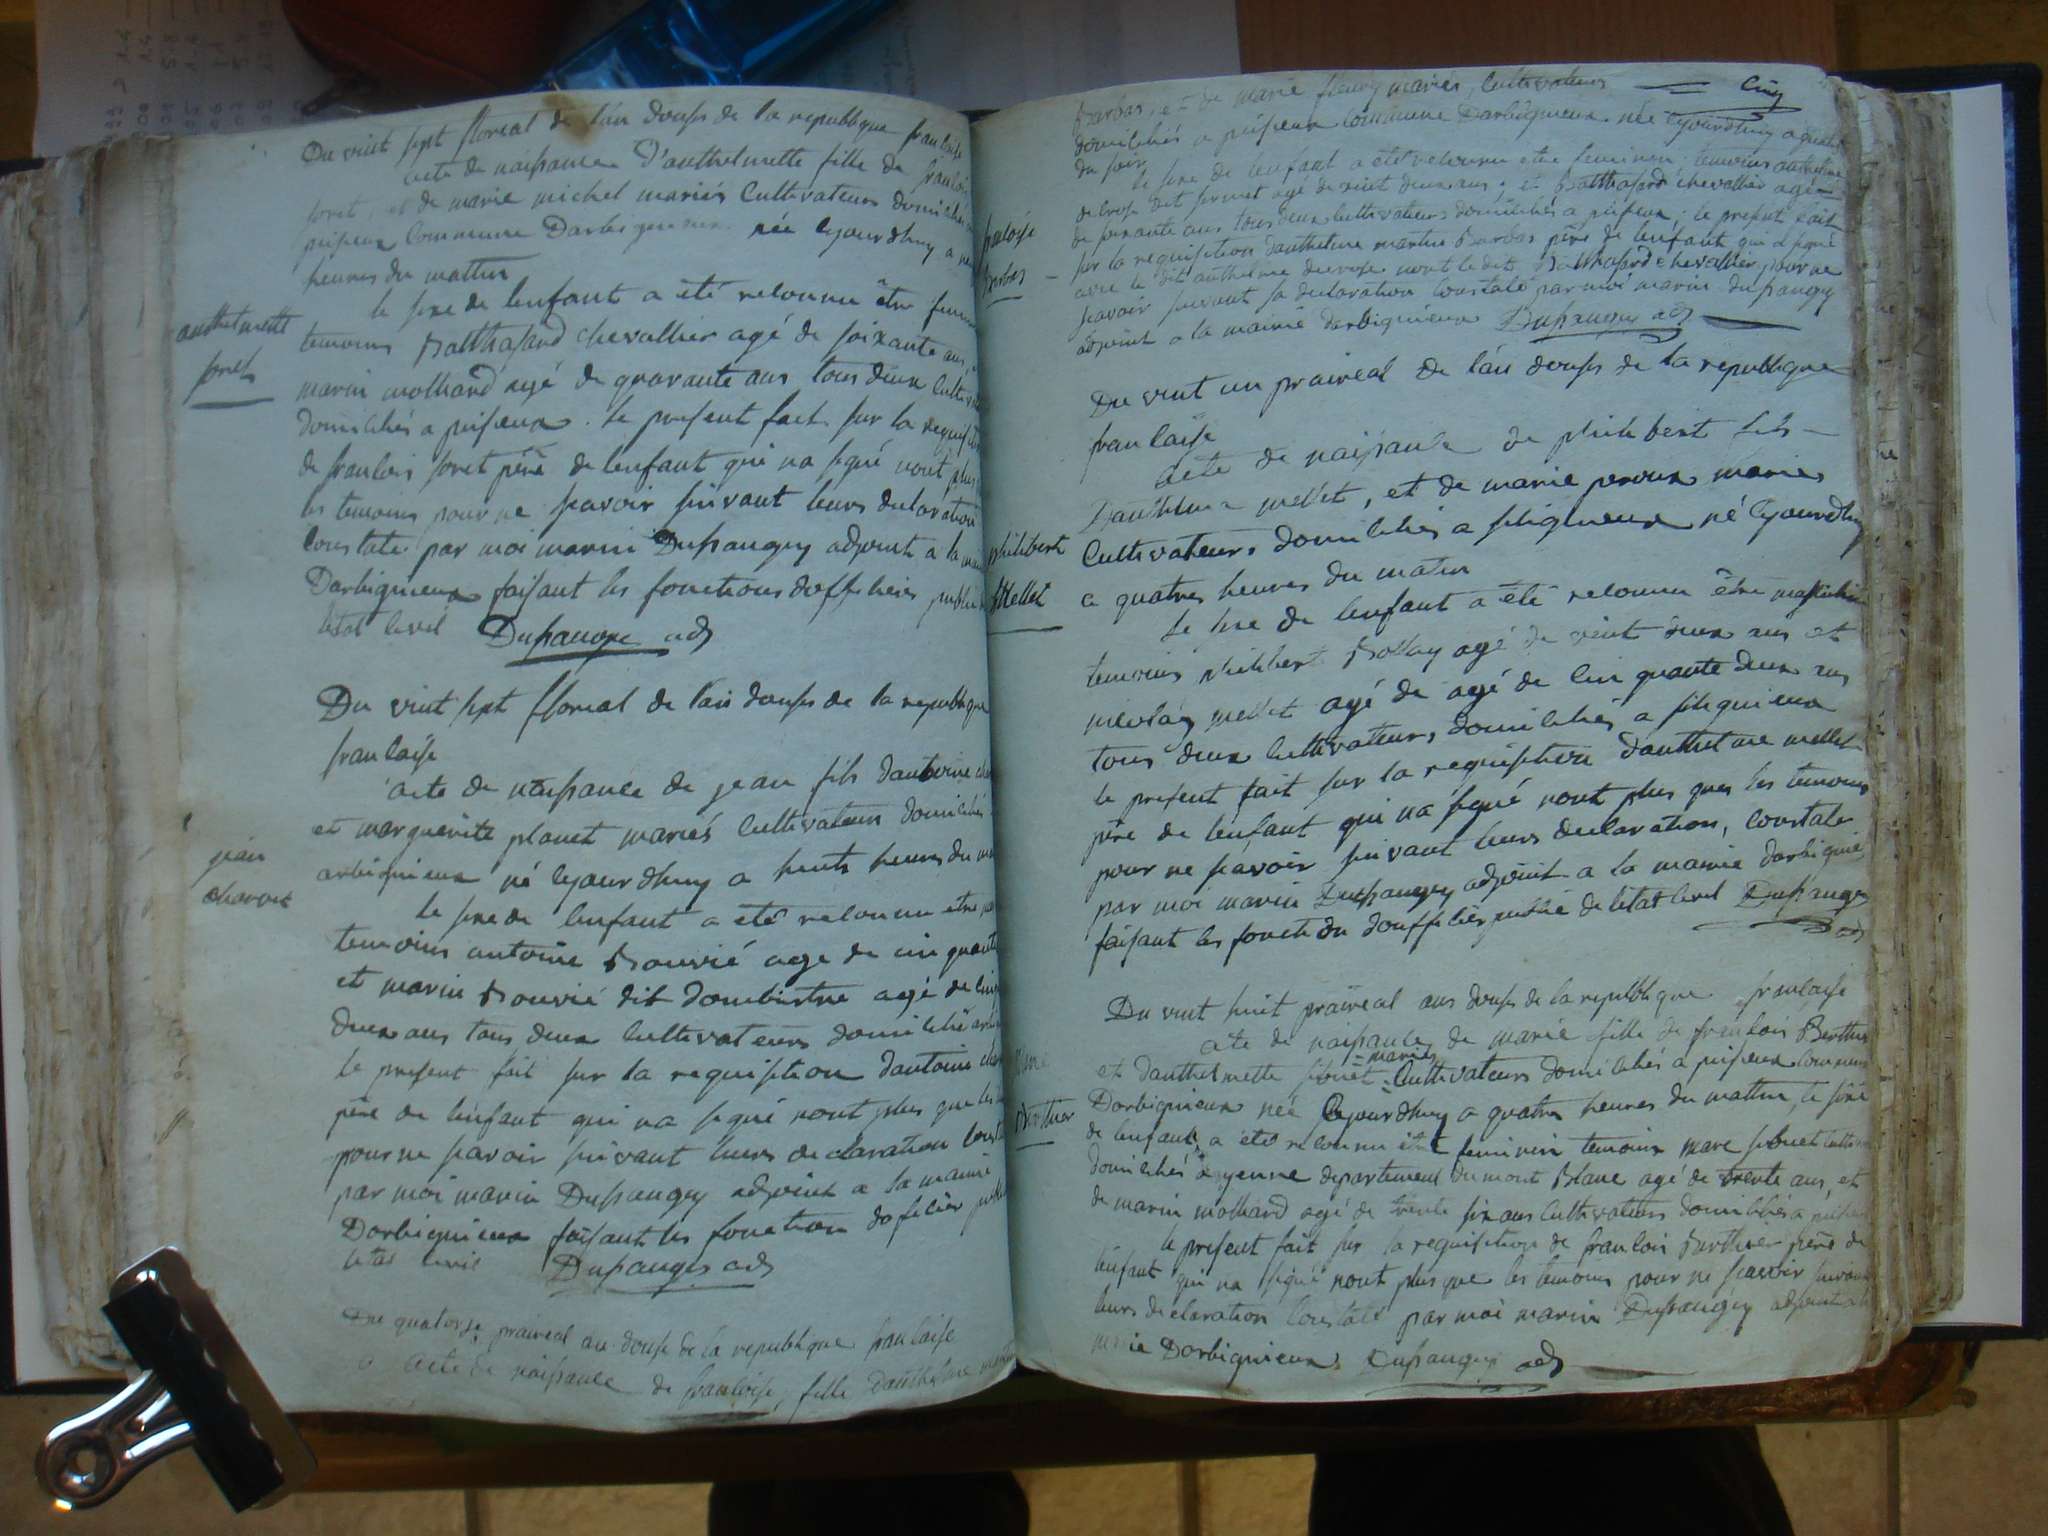 Du vint sept floreal de l'an doufe de la republique francaise
acte de naissance D'anthelmette fille de francois
foret, et de marie michel mariés Cultivateurs domiciliés
peisieux Commune Darbignieux née cejourdhuy a
heures du mattin
le sexe de lenfant a été reconnu être
temoins Balthasard chevallier agé de soixante ans,
anthelmette
foret
marin molhard agé de quarante ans tous deux
domiciliés a peisieux. le present fait sur la
de francois foret père de lenfant qui na signé nont plus
les temoins pour ne scavoir suivant leurs declaration
Constaté par moi marin Dupaugey adjoint a la
Darbignieux faisant les fonctions dofficier public
letat civil Dupaugey adj
Du vint sept floreal de l'an doufe de la republique
francaise
acte de naissance de jean fils dantoine
et marguerite planet mariés Cultivateurs domiciliés
arbignieux né cejourdhuy a huits heures du
jean
charvet
le sexe de lenfant a été reconnu etre
temoins antoine Bouvié agé de cinquante
et marin Bouvié dit dombistne agé de
deux ans tous deux Cultivateurs domicilié
le present fait sur la requisition dantoine
père de lenfant qui na signé nont plus que les
pour ne scavoir suivant leurs declaration
par moi marin Dupaugey adjoint a la mairie
Darbignieux faisant les fonction dofficier
letat civil Dupaugey adj
Du quatorze praireal an doufe de la republique francaise
acte de naissance de francoise, fille danthelme
Cinq
Barbas, et de marie fleury mariés, Cultivateurs
domiciliés a peisieux Commune Darbignieux. née cejourdhuy a
du soir
le sexe de lenfant a été reconnu etre feminin. temoins anthelme
decroso dit agé de vint deux ans; et Balthasard chevallier agé
de soixante ans tous deux Cultivateurs domiciliés a peisieux; le present fait
francoise
Barbas
sur la requisition danthelme martin Barbas père de lenfant qui a signé
avec le dit anthelme decroso non le dit Balthasard chevallier pour ne
scavoir suivant sa declaration Constaté par moi marin dupaugey
adjoint a la mairie darbignieux Dupaugey adj
Du vint un praireal de l'an doufe de la republique
francaise
acte de naissance de philibert fils
Danthelme mellet, et de marie peroux mariés
Cultivateurs domiciliés a né cejourdhuy
a quatres heures du matin
philibert
Mellet
le sexe de lenfant a été reconnu être masculin
temoins philibert Bollay agé de vint deux ans et
nicolas mellet agé de agé de cinquante deux ans
tous deux Cultivateurs domiciliés a
le present fait sur la requisition danthelme mellet
père de lenfant qui na signé nont plus ques les temoins
pour ne scavoir suivant leurs declaration, Constaté
par moi marin Dupaugey adjoint a la mairie
faisant les fonction dofficier public de letat civil Dupaugey
adj
Du vint huit praireal ans doufe de la republique francaise
acte de naissance de marie fille de francois Berthier
et danthelmette mariés Cultivateurs domiciliés a peisieux Commune
Darbignieux née Cejourdhuy a quatre heures du mattin, le sexe
Berthier
de lenfant a été reconnu être feminin temoin marc
domiciliés a yenne departement du mont Blanc agé de trente ans, et
de marin molhard agé de trente six ans Cultivateurs domiciliés a
le present fait sur la requisition de francois Berthier père de
lenfant qui na signé nont plus que les temoins pour ne scavoir suivant
leurs declaration Constaté par moi marin Dupaugey adjoint a la
mairie Darbignieux Dupaugey adj